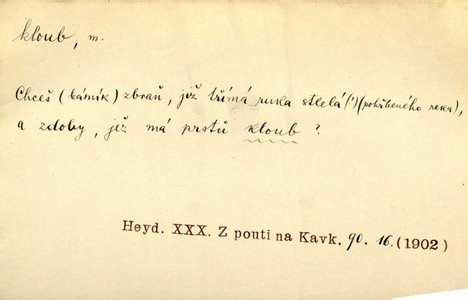 kloub, m.
Chceš (kámík) zbraň, již třímá ruka stlelá (!) (pohřbeného reka),
a zdoby, jež má prstů kloub ?
Heyd. XXX. Z pouti na Kavk. 90. 16. (1902)